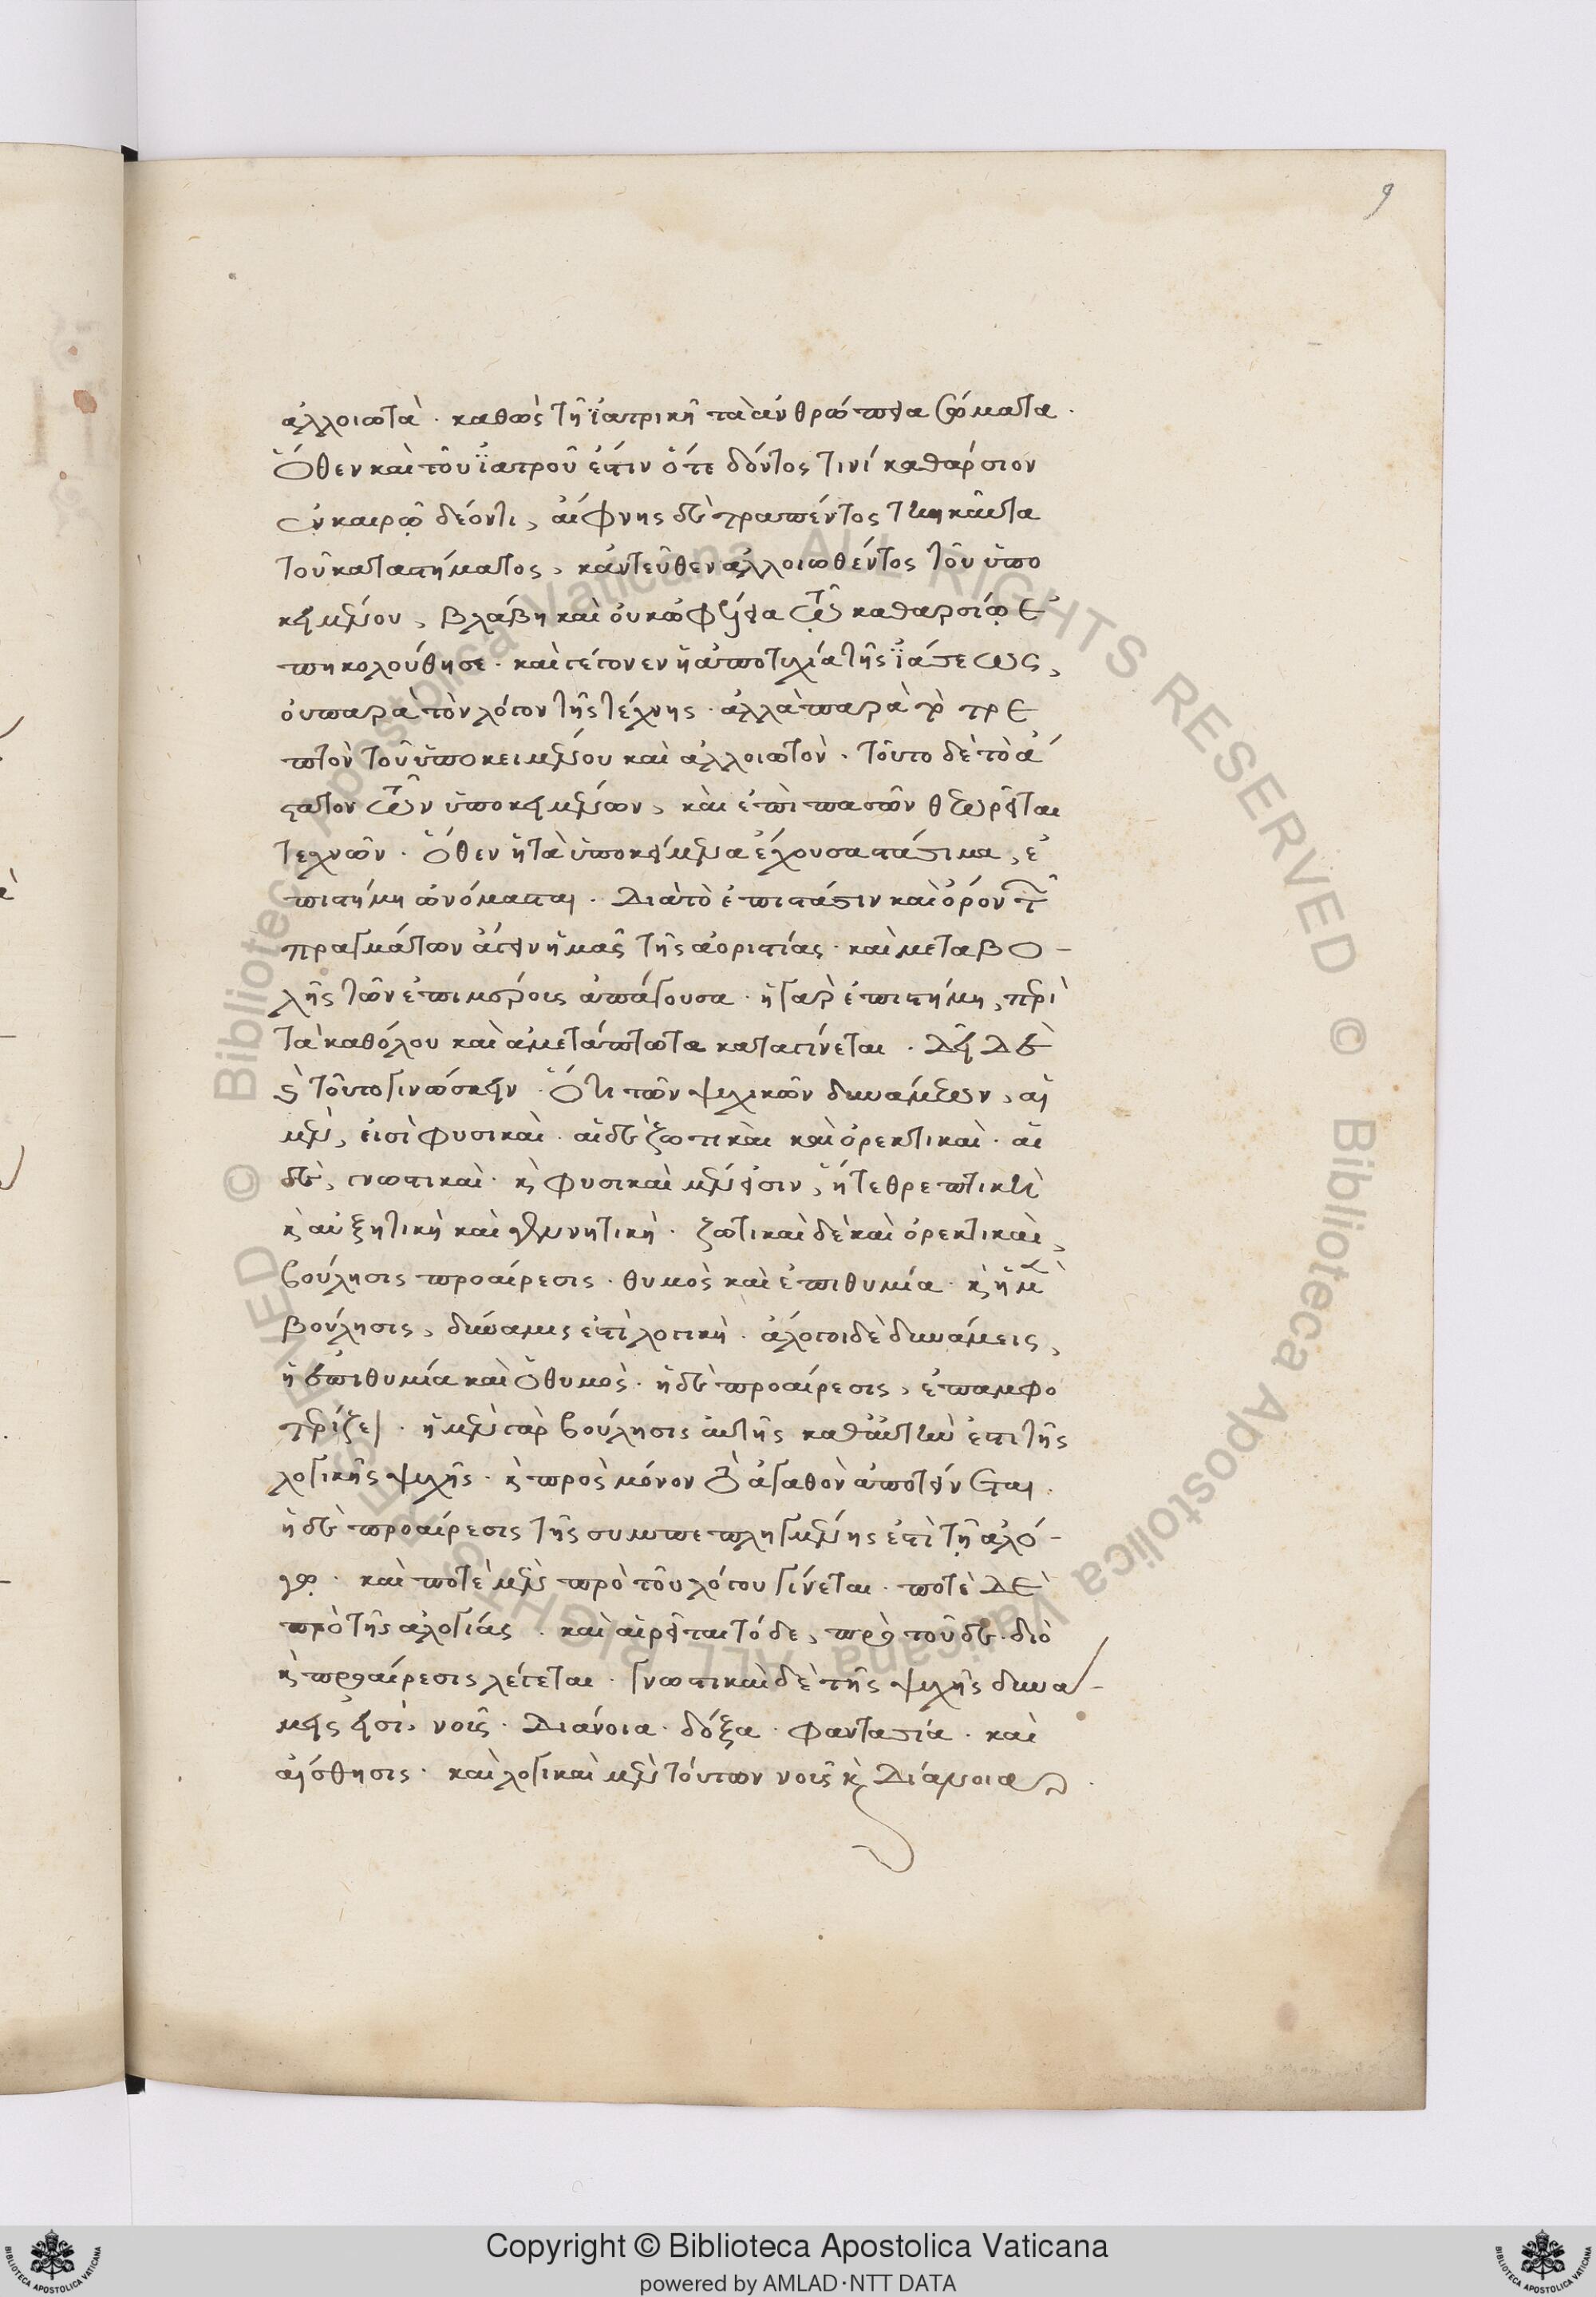 9
ἀλλοιωτὰ · καθὼς τῆ ἰατρικῆ τὰ ἀνθρώπεια σώματα ·
Ὅθεν καὶ τοῦ ἰατροῦ ἔστιν ὅτε δόντος τινὶ καθάρσιον
ἐν καιρῷ δέοντι, αἴφνης δὲ τραπέντος τηνικαῦτα
τοῦ καταστήματος, κἀντεῦθεν ἀλλοιωθέντος τοῦ ὑπο
κειμένου, βλάβη καὶ οὐκ ὠφέλεια τῶ καθαρσίῳ ἐ
πηκολούθησε · καὶ γέγονεν ἡ ἀποτυχία τῆς ἰάσεως,
οὐ παρὰ τὸν λόγον τῆς τέχνης · ἀλλὰ παρὰ τὸ τρε
πτὸν τοῦ ὑποκειμένου καὶ ἀλλοιωτὸν · τοῦτο δὲ τὸ ἄ
στατον τῶν ὑποκειμένων, καὶ ἐπὶ πασῶν θεωρεῖται
τεχνῶν · Ὅθεν ἡ τὰ ὑποκείμενα ἔχουσα στάσιμα, ἐ
πιστήμη ὠνόμασται · Διὰ τὸ ἐπιστάσιν καὶ ὅρον τῶν
πραγμάτων ἄγειν ἡμᾶς τῆς ἀοριστίας · καὶ μεταβο-
λῆς τῶν ἐπιμέρους ἀπάγουσα · ἡ γὰρ ἐπιστήμη, περὶ
τὰ καθόλου καὶ ἀμετάπτωτα καταγίνεται · Δεῖ δὲ
καὶ τοῦτο γινώσκειν · Ὅτι τῶν ψυχικῶν δυνάμεων, αἱ
μὲν, εἰσὶ φυσικαὶ · αἱ δὲ ζωτικαὶ καὶ ὀρεκτικαὶ · αἱ
δὲ, γνωστικαὶ · κ φυσικαὶ μὲν εἰσιν, ἥ τε θρεπτικὴ
κ αὐξητικὴ καὶ γεννητικὴ · ζωτικαὶ δὲ καὶ ὀρεκτικαὶ,
βούλησις προαίρεσις · θυμὸς καὶ ἐπιθυμία · κ ἡ μὲν
βούλησις, δύναμις ἐστὶ λογικὴ · ἄλογοι δὲ δυνάμεις,
ἡ ἐπιθυμία καὶ ὁ θυμὸς · ἡ δὲ προαίρεσις, ἐπαμφο
τερίζει · ἡ μὲν γὰρ βούλησις αὐτῆς καθ' αὑτὴν ἐστι τῆς
λογικῆς ψυχῆς · κ πρὸς μόνον τὸ ἀγαθὸν ἀποτείνεται ·
ἡ δὲ προαίρεσις τῆς συμπεπλεγμένης ἐστὶ τῇ ἀλό-
γῳ · καὶ ποτὲ μὲν πρὸ τοῦ λόγου γίνεται · ποτὲ δὲ
πρὸ τῆς ἀλογίας · καὶ αἱρεῖται τόδε, πρὸ τοῦδε · διὸ
κ προαίρεσις λέγεται · γνωστικαὶ δὲ τῆς ψυχῆς δυνά-
μεις εἰσὶ, νοῦς · Διάνοια · δόξα · φαντασία · καὶ
αἴσθησις · καὶ λογικαὶ μὲν τούτων νοῦς κ Διάνοια ·
Copyright © Biblioteca Apostolica Vaticana
powered by AMLAD·NTT DATA